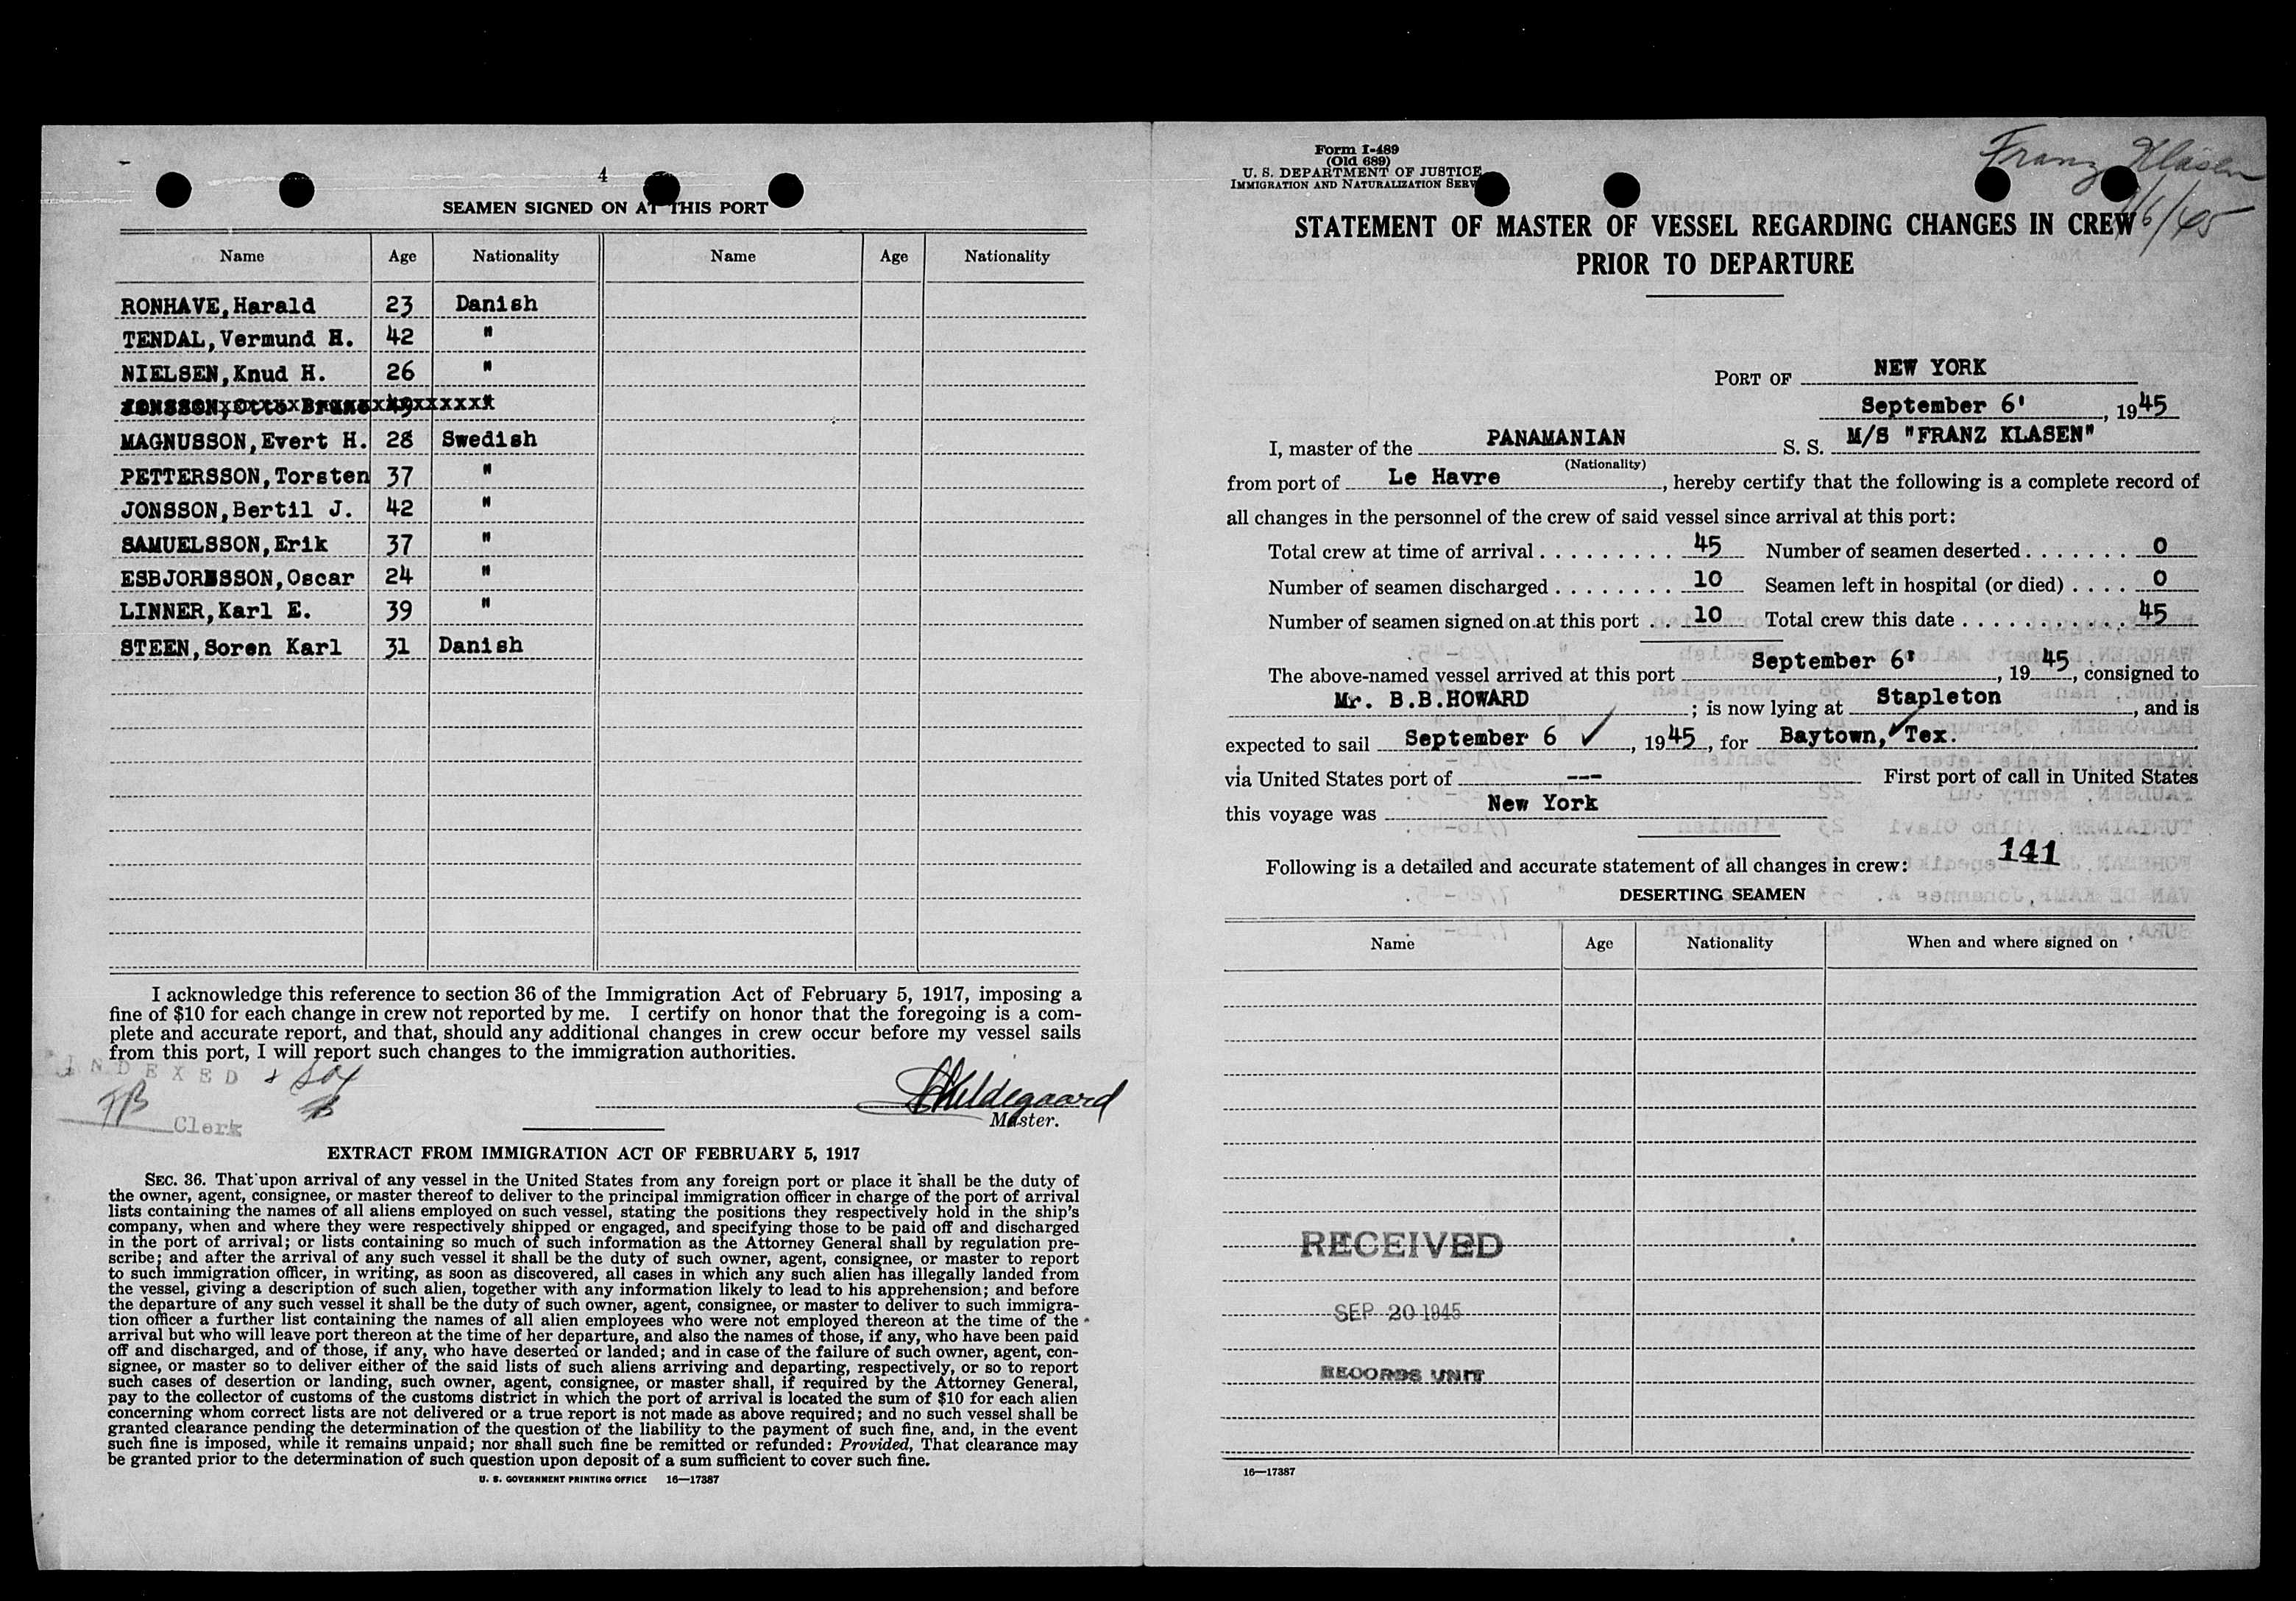 4
SEAMEN SIGNED ON AT THIS PORT
Name Age Nationality Name Age Nationality
RONHAVE, Harald 23 Danish
TENDAL, Vermund H. 42 "
NIELSEN, Knud H. 26 "
MAGNUSSON, Evert H. 28 Swedish
PETTERSSON, Torsten 37 "
JONSSON, Bertil J. 42 "
SAMUELSSON, Erik 37 "
ESBJORNSSON, Oscar 24 "
LINNER, Karl E. 39 "
STEEN, Soren Karl 31 Danish
I acknowledge this reference to section 36 of the Immigration Act of February 5, 1917, imposing a
fine of $10 for each change in crew not reported by me. I certify on honor that the foregoing is a com-
plete and accurate report, and that, should any additional changes in crew occur before my vessel sails
from this port, I will report such changes to the immigration authorities.
INDEXED
Clerk
Master.
EXTRACT FROM IMMIGRATION ACT OF FEBRUARY 5, 1917
SEC. 36. That upon arrival of any vessel in the United States from any foreign port or place it shall be the duty of
the owner, agent, consignee, or master thereof to deliver to the principal immigration officer in charge of the port of arrival
lists containing the names of all aliens employed on such vessel, stating the positions they respectively hold in the ship's
company, when and where they were respectively shipped or engaged, and specifying those to be paid off and discharged
in the port of arrival; or lists containing so much of such information as the Attorney General shall by regulation pre-
scribe; and after the arrival of any such vessel it shall be the duty of such owner, agent, consignee, or master to report
to such immigration officer, in writing, as soon as discovered, all cases in which any such alien has illegally landed from
the vessel, giving a description of such alien, together with any information likely to lead to his apprehension; and before
the departure of any such vessel it shall be the duty of such owner, agent, consignee, or master to deliver to such immigra-
tion officer a further list containing the names of all alien employees who were not employed thereon at the time of the
arrival but who will leave port thereon at the time of her departure, and also the names of those, if any, who have been paid
off and discharged, and of those, if any, who have deserted or landed; and in case of the failure of such owner, agent, con-
signee, or master so to deliver either of the said lists of such aliens arriving and departing, respectively, or so to report
such cases of desertion or landing, such owner, agent, consignee, or master shall, if required by the Attorney General,
pay to the collector of customs of the customs district in which the port of arrival is located the sum of $10 for each alien
concerning whom correct lists are not delivered or a true report is not made as above required; and no such vessel shall be
granted clearance pending the determination of the question of the liability to the payment of such fine, and, in the event
such fine is imposed, while it remains unpaid; nor shall such fine be remitted or refunded: Provided, That clearance may
be granted prior to the determination of such question upon deposit of a sum sufficient to cover such fine.
U. S. GOVERNMENT PRINTING OFFICE 16—17387
Form I-489
(Old 689)
U. S. DEPARTMENT OF JUSTICE
IMMIGRATION AND NATURALIZATION SERV
Franz Klasen
9/6/45
STATEMENT OF MASTER OF VESSEL REGARDING CHANGES IN CREW
PRIOR TO DEPARTURE
PORT OF NEW YORK
September 6', 1945
I, master of the PANAMANIAN S. S. M/S "FRANZ KLASEN"
(Nationality)
from port of Le Havre, hereby certify that the following is a complete record of
all changes in the personnel of the crew of said vessel since arrival at this port:
Total crew at time of arrival . . . . . . . . . 45 Number of seamen deserted . . . . . . . 0
Number of seamen discharged . . . . . . . . 10 Seamen left in hospital (or died) . . . . 0
Number of seamen signed on at this port . . 10 Total crew this date . . . . . . . . . . . 45
The above-named vessel arrived at this port September 6', 1945, consigned to
Mr. B.B.HOWARD; is now lying at Stapleton, and is
expected to sail September 6 ✓, 1945, for Baytown, ✓Tex.
via United States port of --- First port of call in United States
this voyage was New York
141
Following is a detailed and accurate statement of all changes in crew:
DESERTING SEAMEN
Name Age Nationality When and where signed on
RECEIVED
SEP 20 1945
RECORDS UNIT
16—17387